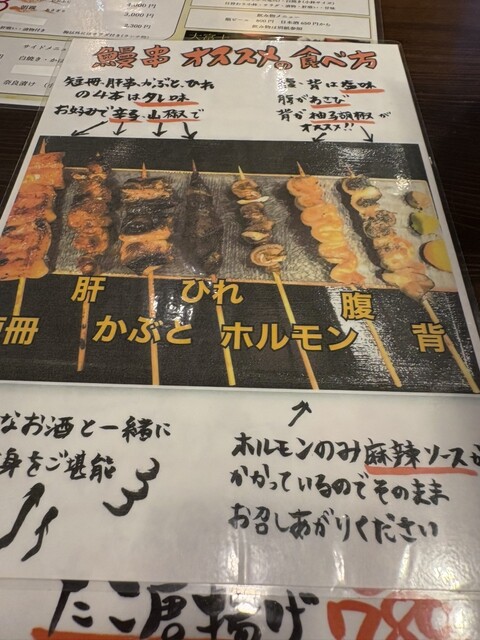 鰻串 オススメの食べ方
短冊、肝串、かぶと、ひれ
の4本はタレ味
お好みで辛子、山椒で
腹、背は塩味
腹がわさび
背が柚子胡椒が
オススメ!!
肝 ひれ 腹
短冊 かぶと ホルモン 背
なお酒と一緒に
身をご堪能
ホルモンのみ麻辣ソースが
かかっているのでそのまま
お召しあがりください
たこ唐揚げ 78
サイドメニュー